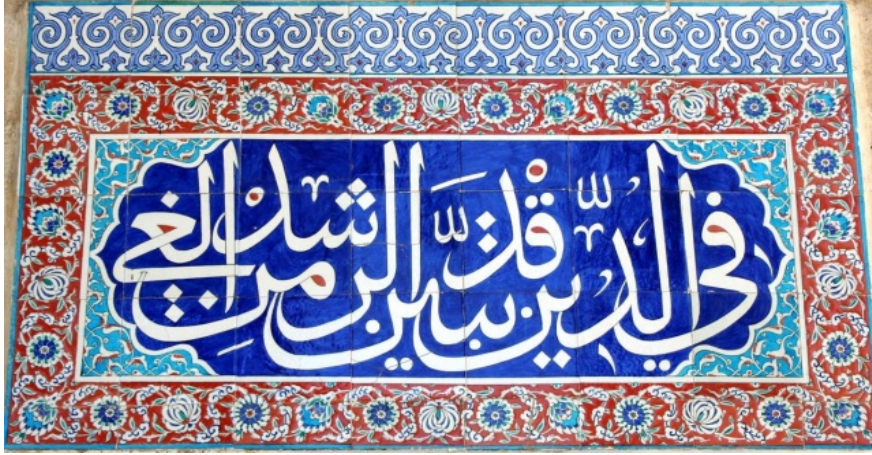 في الدين قد تبين الرشد من الغي